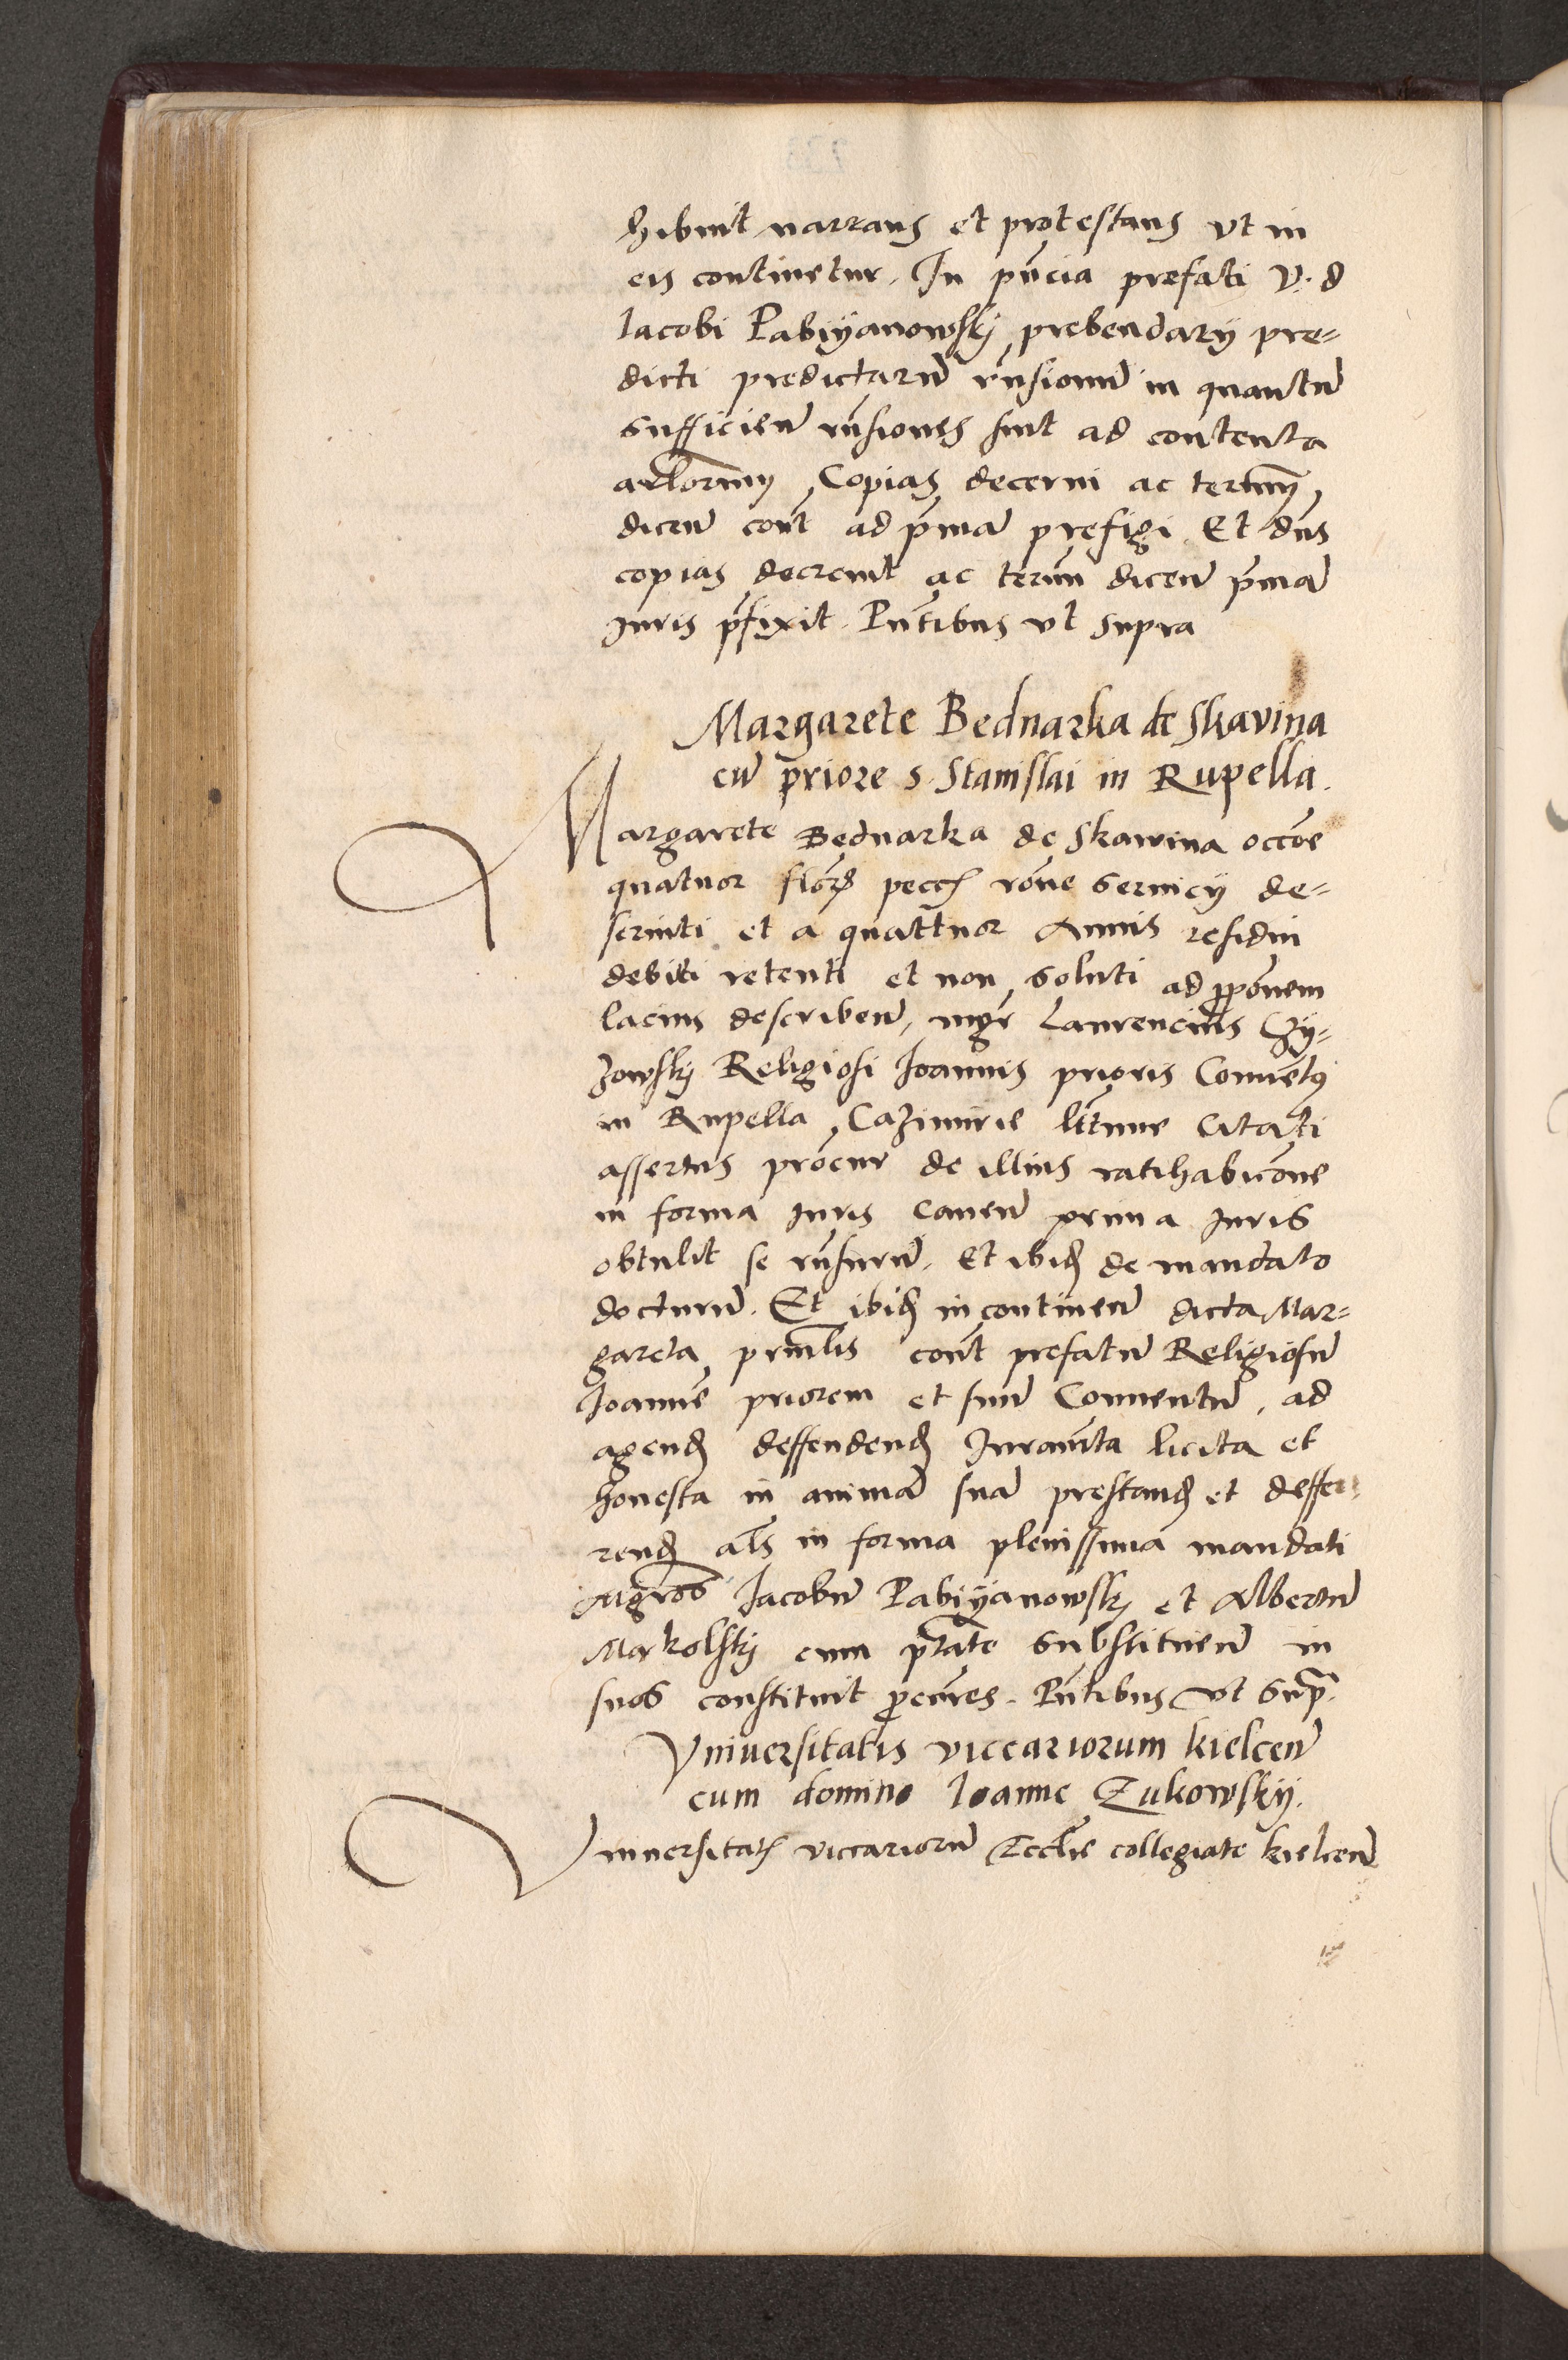 hibuit narrans et protestans vt in
eis continetur. In pn̄cia prefati V. d
Iacobi Pabiyanowskj prebendarÿ pre=
dicti predictarū rn̄sionū in quantū
sufficien̄ rn̄siones sint ad contenta
artlorum, Copias decerni ac termn̄
dicen̄ cont̄ ad p̄ma prefigi. Et dn̄s
copias decreuit ac termn̄ dicen̄ p̄ma
Iuris p̄fixit. Pn̄tibus vt supra
Margarete Bednarka de Skavina
cū priore s. Stanislai in Rupella.
Margarete Bednarka de Skawina occōe
quatuor flor̄ pecc̄ rōne seruicÿ de=
seruiti et a quattuor Annis residui
debiti retenti et non soluti ad ꝓpōnem
lacius describen̄, mgr̄ Laurencius Czÿ=
zowskj Religiosi Ioannis prioris Conuēt9
in Rupella Cazimirie lt̄time citati
assertus procur̄ de illius ratihabicōne
in forma Iuris cauen̄ prima Iuris
obtulit se rn̄surū. Et ibid̄ de mandato
docturū. Et ibid̄ incontinen̄ dicta Mar=
gareta prin̄lis cont̄ prefatū Religiosū
Ioannē priorem et suū Conuentū, ad
agend̄ deffendend̄ Iuramt̄a licita et
honesta in animā suā prestand̄ et deffe=
rend̄ als̄ in forma plenissima mandati
Mgr̄os Iacobū Pabiÿanowskj et Albertū
Makolskj cum pt̄ate substituen̄ in
suos constituit ꝓcur̄es. Pn̄tibus vt sup̄.
Vniuersitatis viccariorum kielcen̄
cum domino Ioanne Zukowskÿ.
Vniuersitat̄ viccariorū Eccl̄ie collegiate kielcen̄